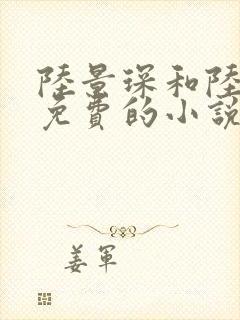 陸景琛和陸
免費的小説
姜軍